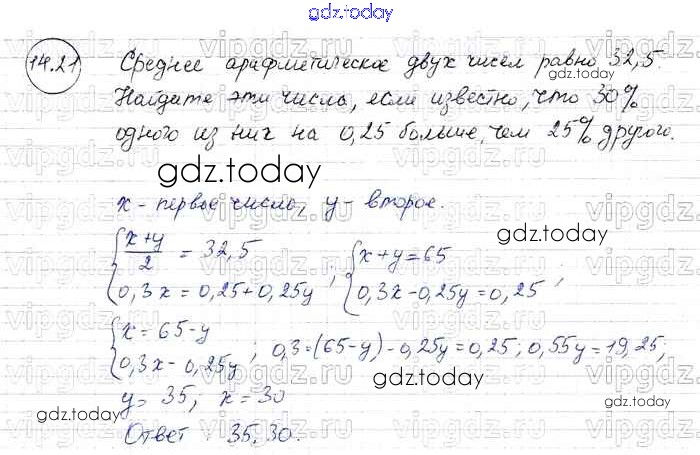 gdz.today
14.21 Среднее арифметическое двух чисел равно 32,5.
gdz.today
Найдите эти числа, если известно, что 30%
одного из них на 0,25 больше, чем 25% другого.
gdz.today
gdz.today
x - первое число, y - второе.
gdz.today
{ (x+y)/2 = 32,5 ; { x+y=65 ,
0,3x = 0,25+0,25y 0,3x-0,25y=0,25
{ x = 65-y
0,3x - 0,25y ; 0,3=(65-y)-0,25y=0,25; 0,55y=19,25;
y= 35, x=30
gdz.today
gdz.today
Ответ : 35,30.
vipgdz.ru